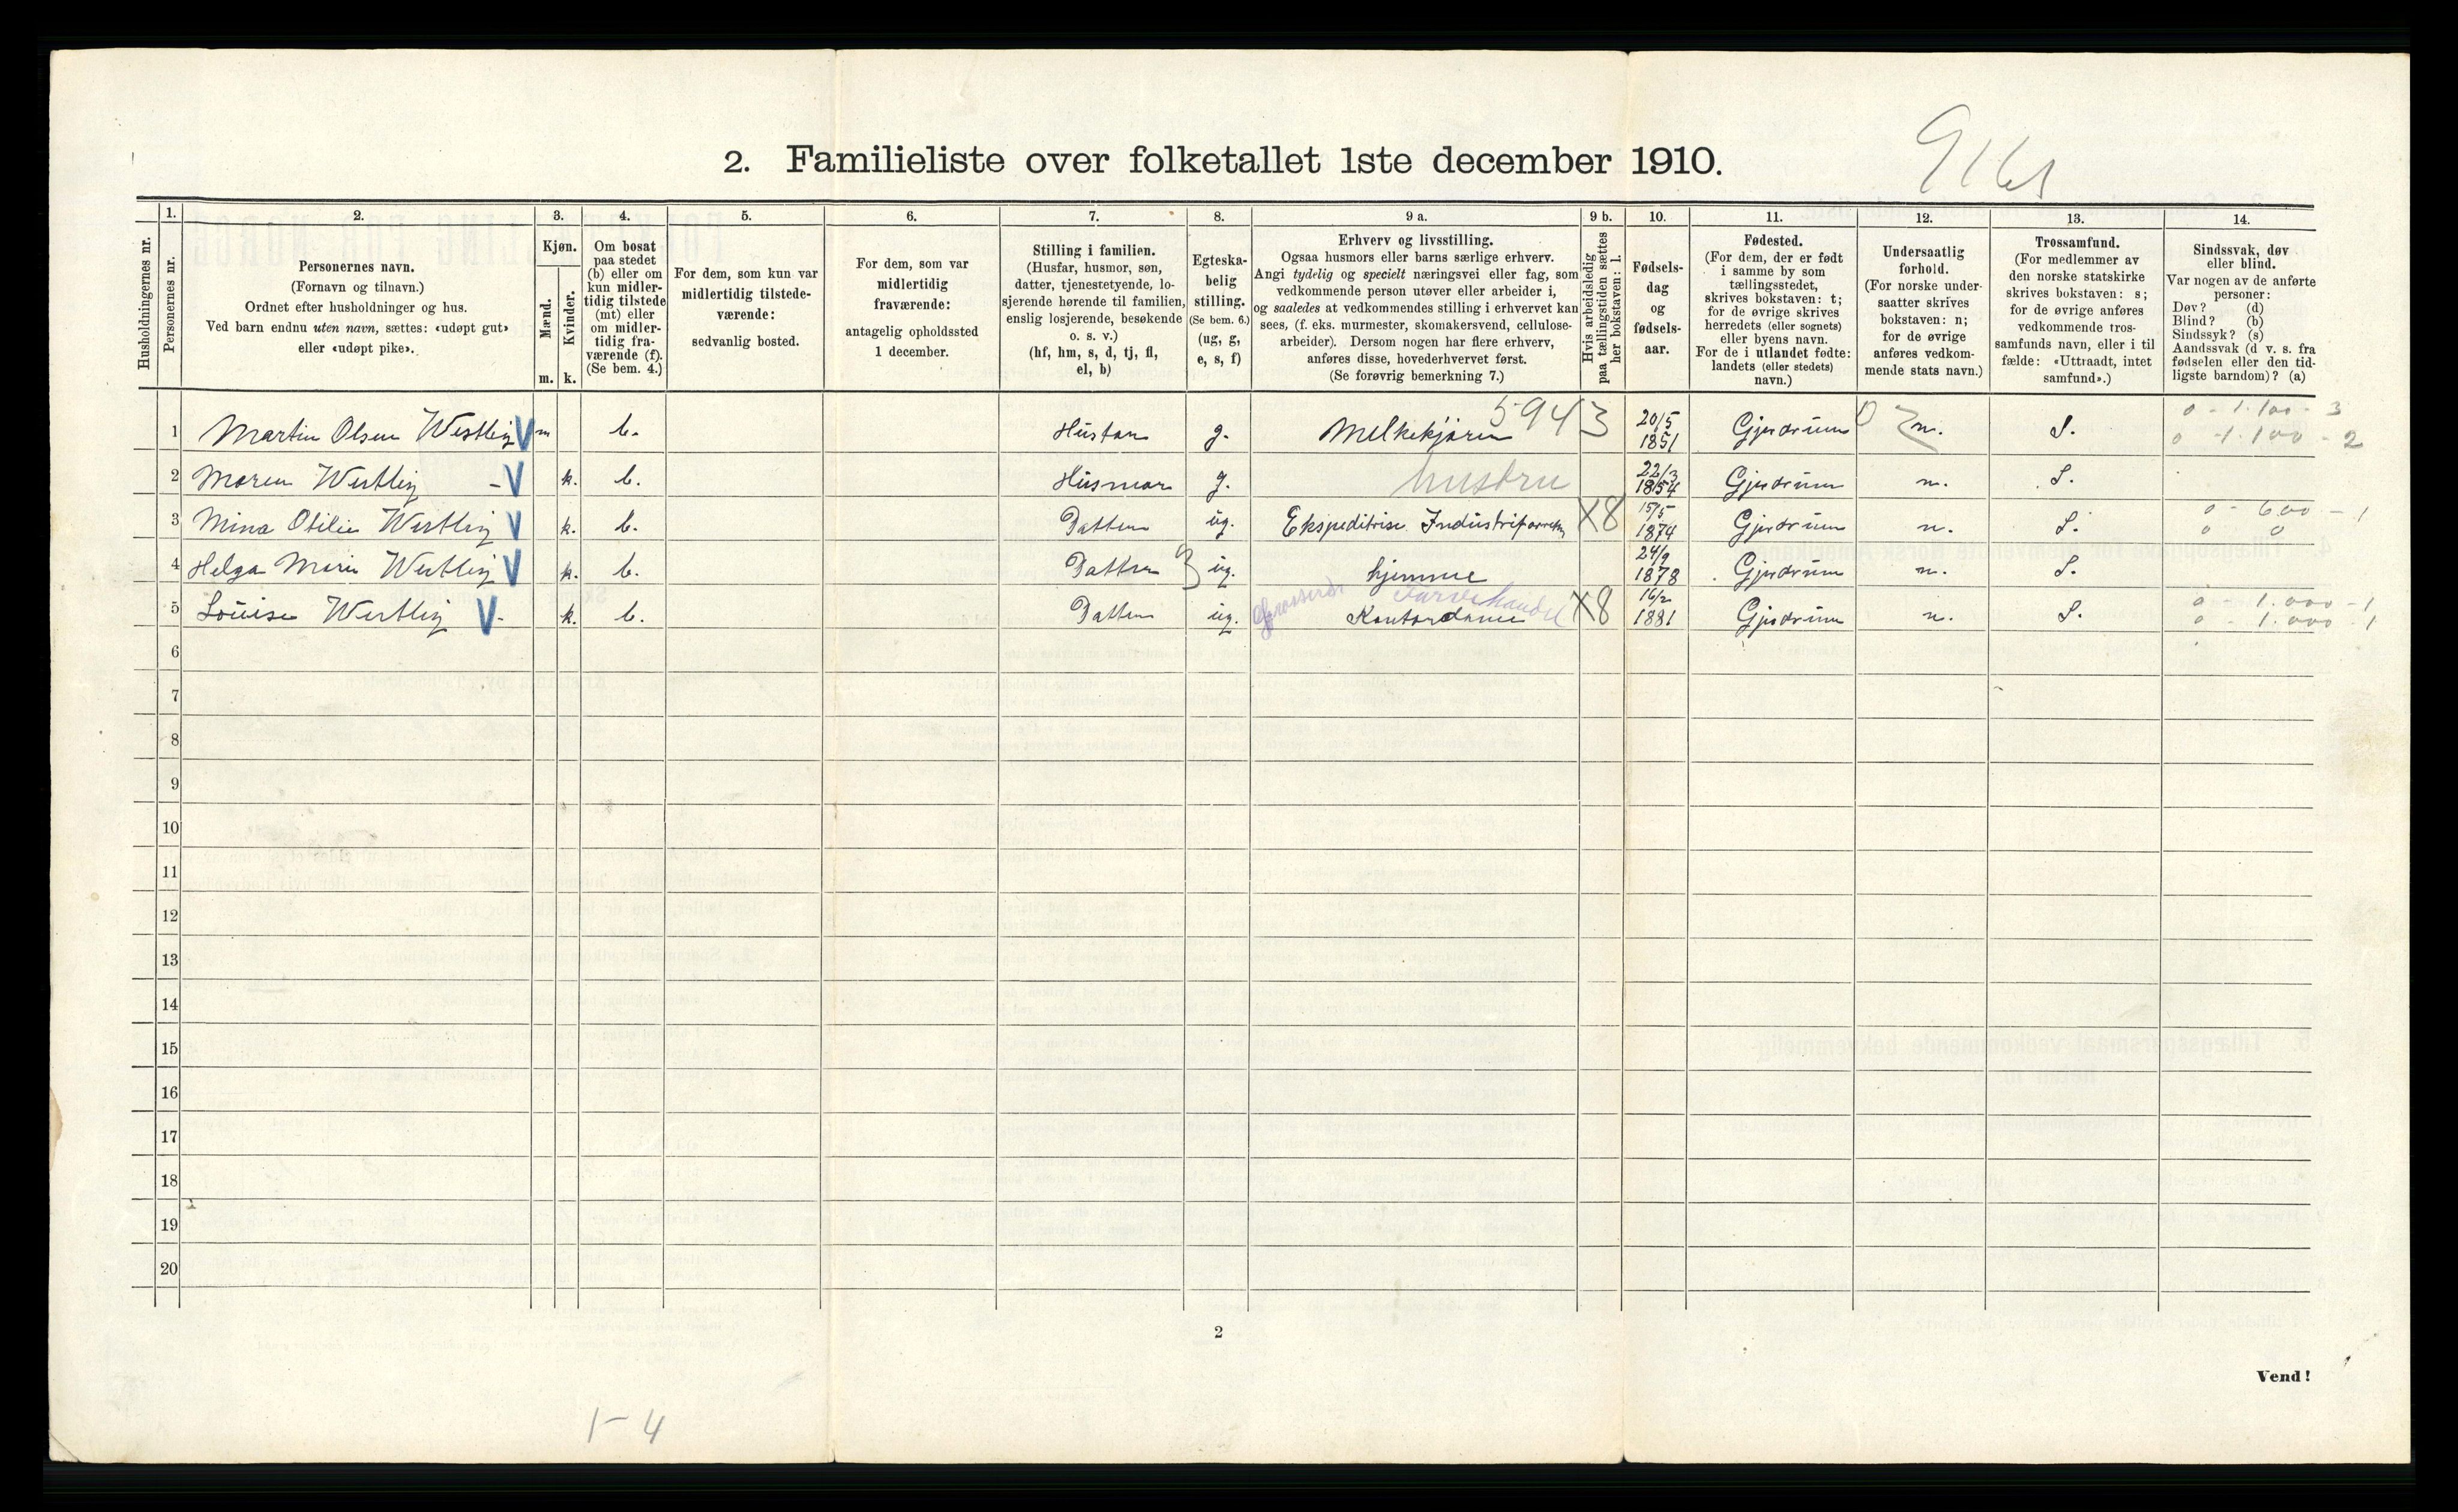 2. Familieliste over folketallet 1ste december 1910.
1. 2. 3. 4. 5. 6. 7. 8. 9 a. 9 b. 10. 11. 12. 13. 14.
Husholdningernes nr.
Personernes nr.
Personernes navn.
(Fornavn og tilnavn.)
Ordnet efter husholdninger og hus.
Ved barn endnu uten navn, sættes: «udøpt gut»
eller «udøpt pike».
Kjøn.
Mænd.
Kvinder.
m. k.
Om bosat
paa stedet
(b) eller om
kun midler-
tidig tilstede
(mt) eller
om midler-
tidig fra-
værende (f).
(Se bem. 4.)
For dem, som kun var
midlertidig tilstede-
værende:
sedvanlig bosted.
For dem, som var
midlertidig
fraværende:
antagelig opholdssted
1 december.
Stilling i familien.
(Husfar, husmor, søn,
datter, tjenestetyende, lo-
sjerende hørende til familien,
enslig losjerende, besøkende
o. s. v.)
(hf, hm, s, d, tj, fl,
el, b)
Egteska-
belig
stilling.
(Se bem. 6.)
(ug, g,
e, s, f)
Erhverv og livsstilling.
Ogsaa husmors eller barns særlige erhverv.
Angi tydelig og specielt næringsvei eller fag, som
vedkommende person utøver eller arbeider i,
og saaledes at vedkommendes stilling i erhvervet kan
sees, (f. eks. murmester, skomakersvend, cellulose-
arbeider). Dersom nogen har flere erhverv,
anføres disse, hovederhvervet først.
(Se forøvrig bemerkning 7.)
Hvis arbeidsledig
paa tællingstiden sættes
her bokstaven: l.
Fødsels-
dag
og
fødsels-
aar.
Fødested.
(For dem, der er født
i samme by som
tællingsstedet,
skrives bokstaven: t;
for de øvrige skrives
herredets (eller sognets)
eller byens navn.
For de i utlandet fødte:
landets (eller stedets)
navn.)
Undersaatlig
forhold.
(For norske under-
saatter skrives
bokstaven: n;
for de øvrige
anføres vedkom-
mende stats navn.)
Trossamfund.
(For medlemmer av
den norske statskirke
skrives bokstaven: s;
for de øvrige anføres
vedkommende tros-
samfunds navn, eller i til
fælde: «Uttraadt, intet
samfund».)
Sindssvak, døv
eller blind.
Var nogen av de anførte
personer:
Døv? (d)
Blind? (b)
Sindssyk? (s)
Aandssvak (d v. s. fra
fødselen eller den tid-
ligste barndom)? (a)
1 Martin Olsen Westlig V m b. Husfar g. Melkekjører 5943 20/5 1851 Gjerdrum n. S. 0 - 1.100 - 3
0 - 1.100 - 2
2 Maren Westlig - V k. b. Husmor g. hustru 22/3 1854 Gjerdrum n. S.
3 Mina Otilie Westlig V k. b. Datter ug. Ekspeditrise Industriforretn X8 15/5 1874 Gjerdrum n. S. 0 - 600 - 1
0 0
4 Helga Marie Westlig V k. b. Datter ug. hjemme 24/9 1878 Gjerdrum n. S.
5 Louise Westlig V. k. b. Datter ug. Grosserer Farvehandel Kontordame X8 16/2 1881 Gjerdrum n. S. 0 - 1.000 - 1
0 - 1.000 - 1
6
7
8
9
10
11
12
13
14
15
16
17
18
19
20
2
Vend!
1-4